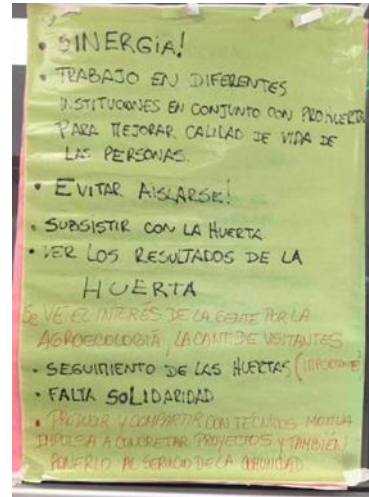 • SINERGIA!
• TRABAJO EN DIFERENTES
INSTITUCIONES EN CONJUNTO CON PROHUERTA
PARA MEJORAR CALIDAD DE VIDA DE
LAS PERSONAS.
• EVITAR AISLARSE!
• SUBSISTIR CON LA HUERTA
• VER LOS RESULTADOS DE LA
HUERTA
SE VE EL INTERÉS DE LA GENTE POR LA
AGROECOLOGÍA, LA CANT. DE VISITANTES
• SEGUIMIENTO DE LAS HUERTAS (IMPORTANTE)
• FALTA SOLIDARIDAD
• PRODUCIR Y COMPARTIR CON TÉCNICOS MOTIVA
IMPULSA A CONCRETAR PROYECTOS Y TAMBIÉN
PONERLO AL SERVICIO DE LA COMUNIDAD